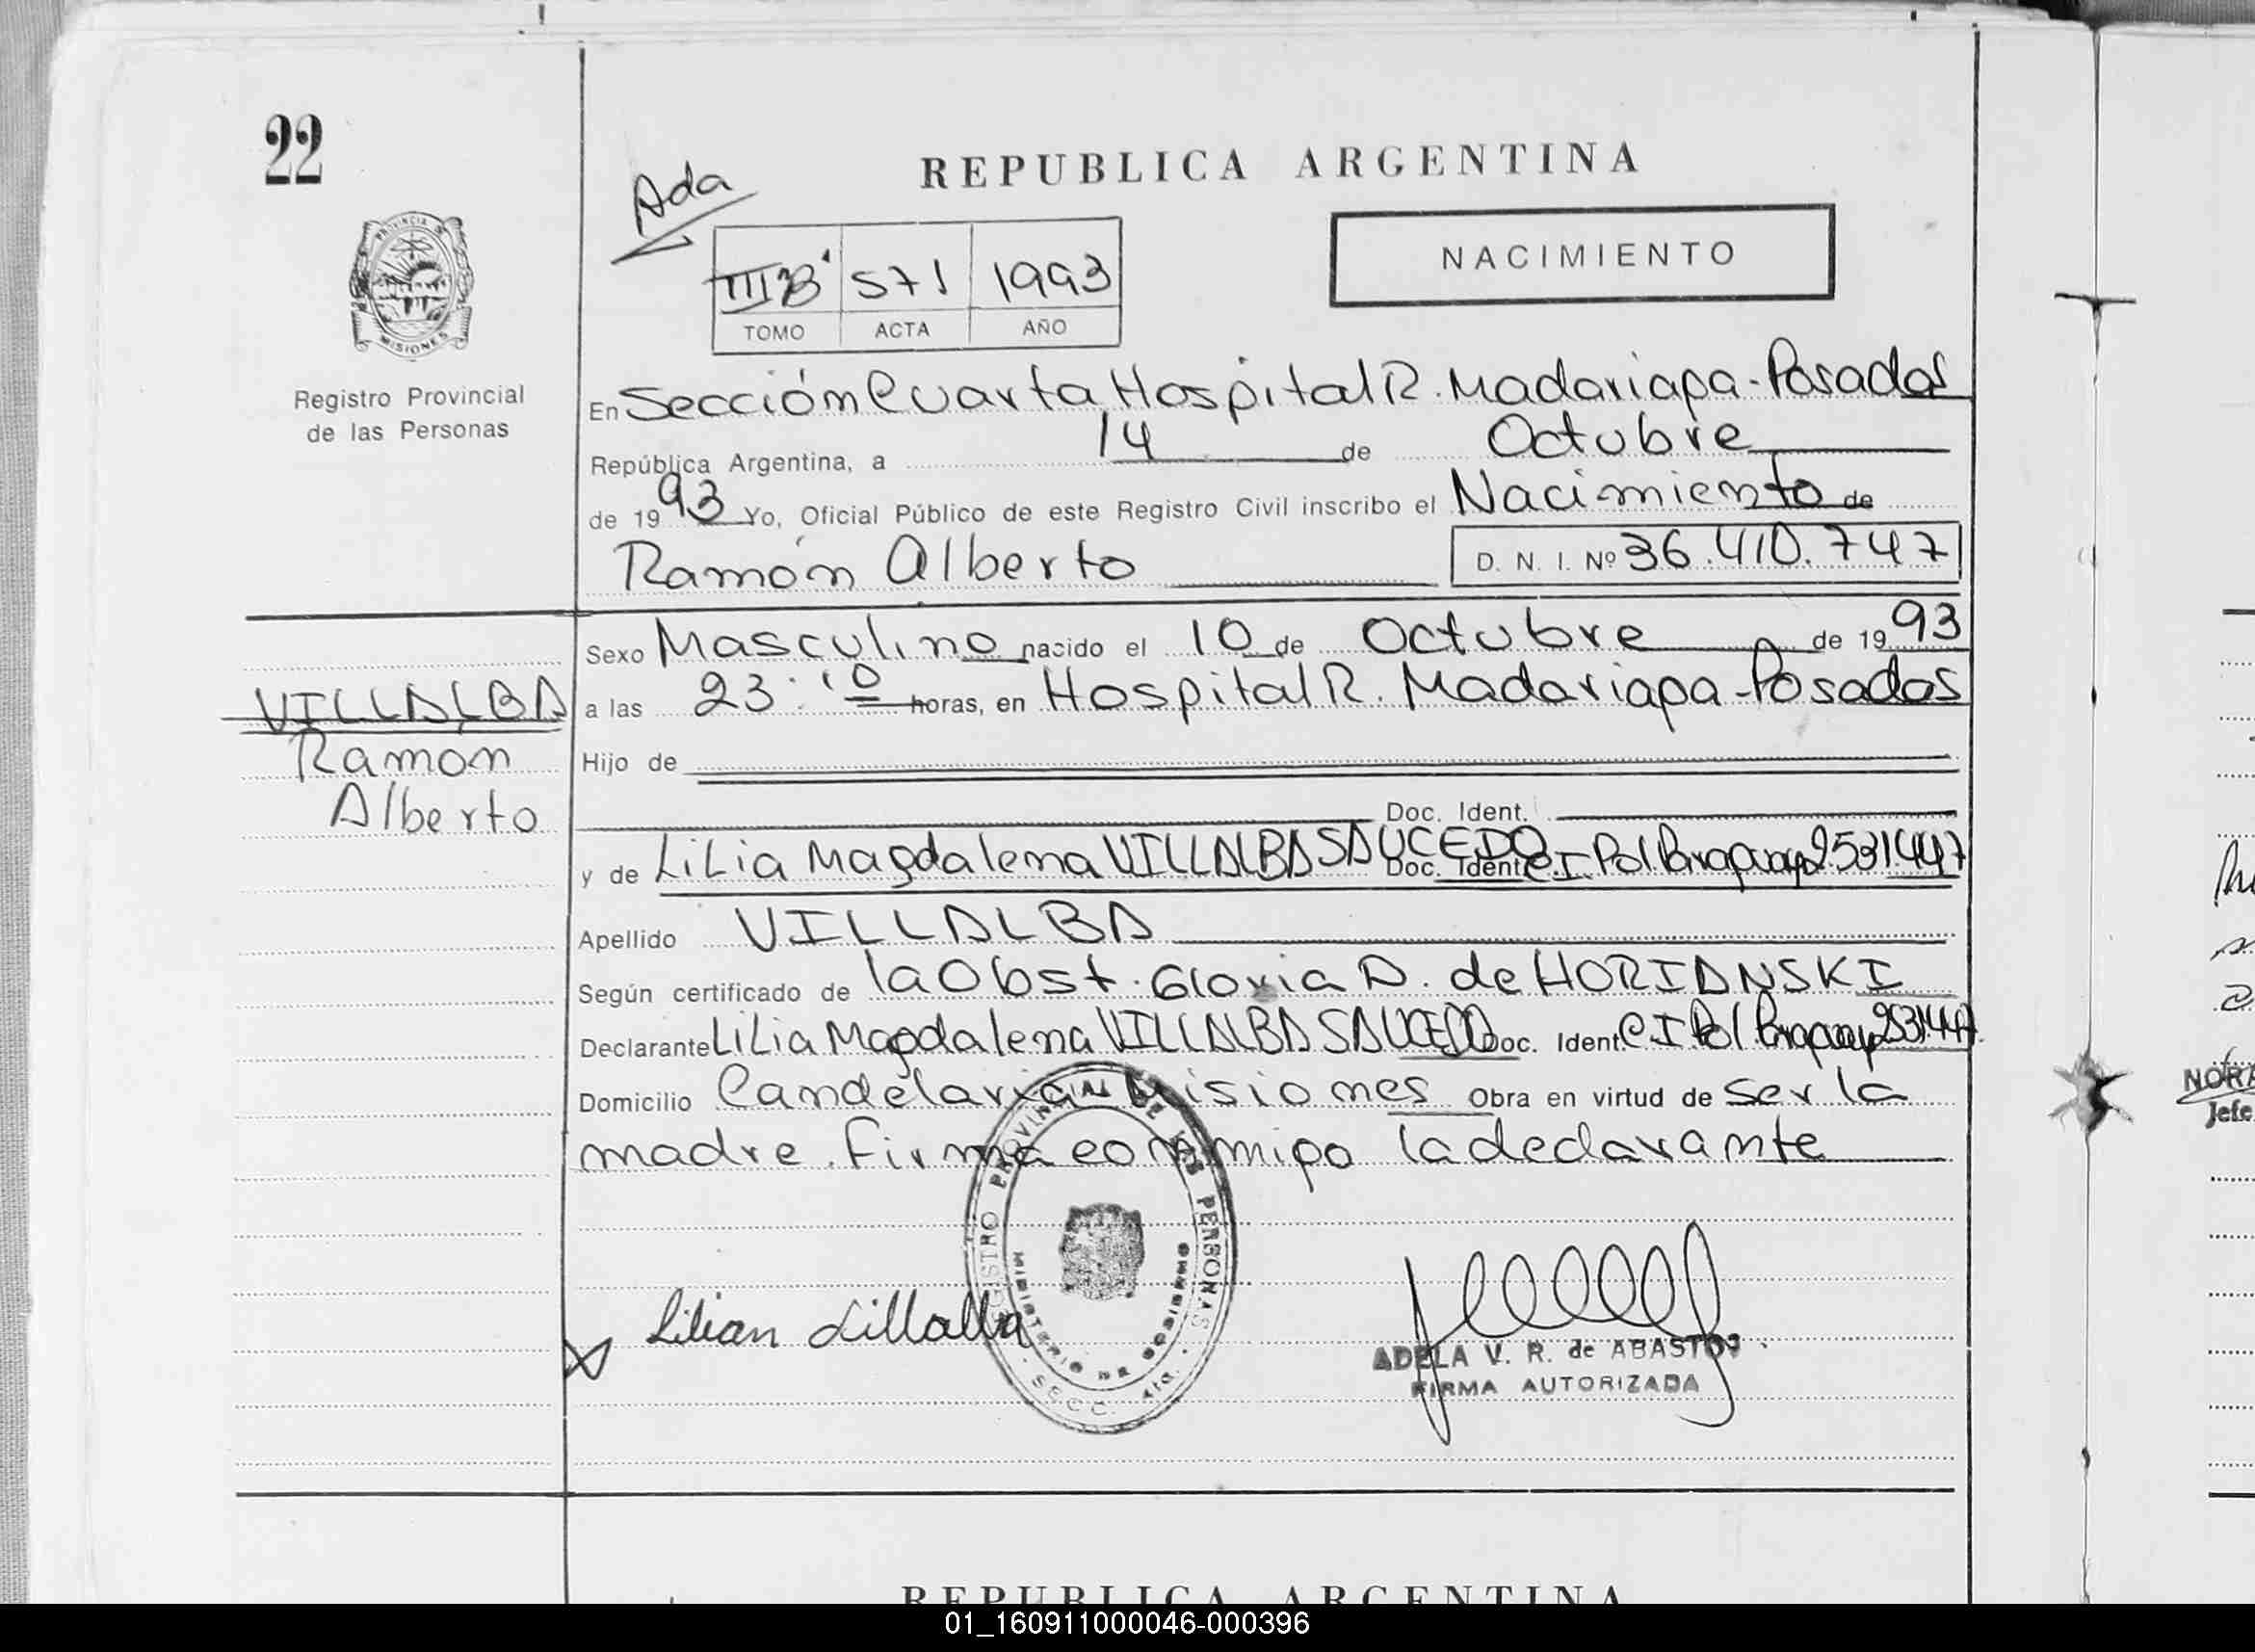 22
REPUBLICA ARGENTINA
Ada
NACIMIENTO
III B' 571 1993
TOMO ACTA AÑO
PROVINCIA DE MISIONES
Registro Provincial
de las Personas
En Sección Cuarta Hospital R. Madariaga - Posadas
República Argentina, a 14 de Octubre
de 1993 Yo, Oficial Público de este Registro Civil inscribo el Nacimiento de
Ramón Alberto D. N. I. Nº 36.410.747
Sexo Masculino nacido el 10 de Octubre de 1993
VILLALBA
Ramón
Alberto
a las 23:10 horas, en Hospital R. Madariaga - Posadas
Hijo de
Doc. Ident.
y de LiLia Magdalena VILLALBA SAUCEDO Doc. Ident. C.I. Pol. Paraguay 2531447
Apellido VILLALBA
Según certificado de la Obst. Gloria A. de HORIANSKI
Declarante LiLia Magdalena VILLALBA SAUCEDO Doc. Ident. C I Pol Paraguay 2531447
Domicilio Candelaria Misiones Obra en virtud de ser la
madre. Firma conmigo la declarante
REGISTRO PROVINCIAL DE LAS PERSONAS
MINISTERIO DE GOBIERNO
SECC. 4ta.
Lilian Lillalba
ADELA V. R. de ABASTOS
FIRMA AUTORIZADA
NORA
Jefe
REPUBLICA ARGENTINA
01_160911000046-000396